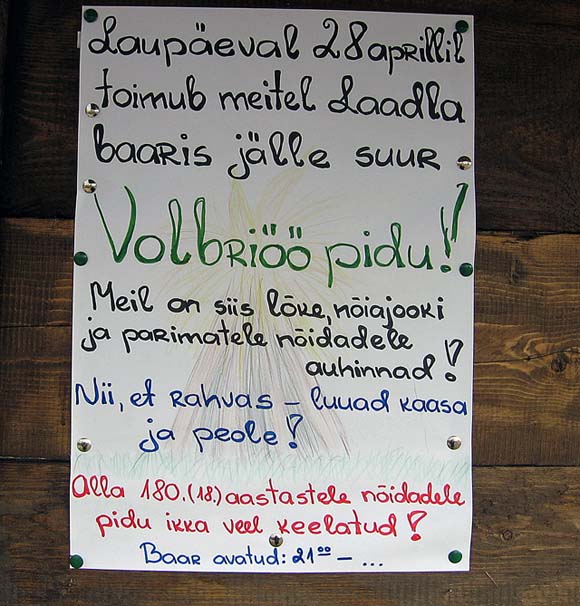 Laupäeval 28 aprillil
toimub meitel Laadla
baaris jälle suur
Volbriöö pidu!!
Meil on siis lõke, nõiajooki
ja parimatele nõidadele
auhinnad!
Nii, et rahvas – luuad kaasa
ja peole!
Alla 180.(18.) aastastele nõidadele
pidu ikka veel keelatud!
Baar avatud: 21⁰⁰ – ...